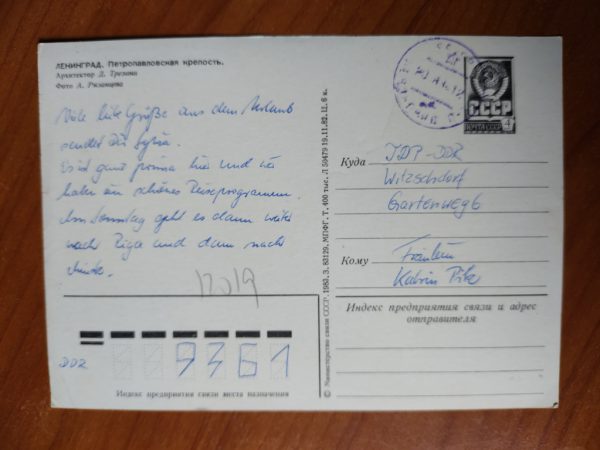 ЛЕНИНГРАД. Петропавловская крепость.
Архитектор Д. Трезини
Фото А. Рязанцева
Viele liebe Grüße aus dem Urlaub
sendet Dir Sylvia.
Es ist ganz prima hier und wir
haben ein schönes Reiseprogramm.
Am Sonntag geht es dann weiter
nach Riga und dann nach
Minsk.
12019
DDR
9361
Индекс предприятия связи места назначения
© Министерство связи СССР. 1983. З. 83129. МПФГ. Т. 400 тыс. Л 50479 19.11.82. Ц. 6 к.
СССР
ПОЧТА СССР
4
Куда
DDR
Witzschdorf
Gartenweg 6
Кому
Fräulein
Katrin
Индекс предприятия связи и адрес
отправителя